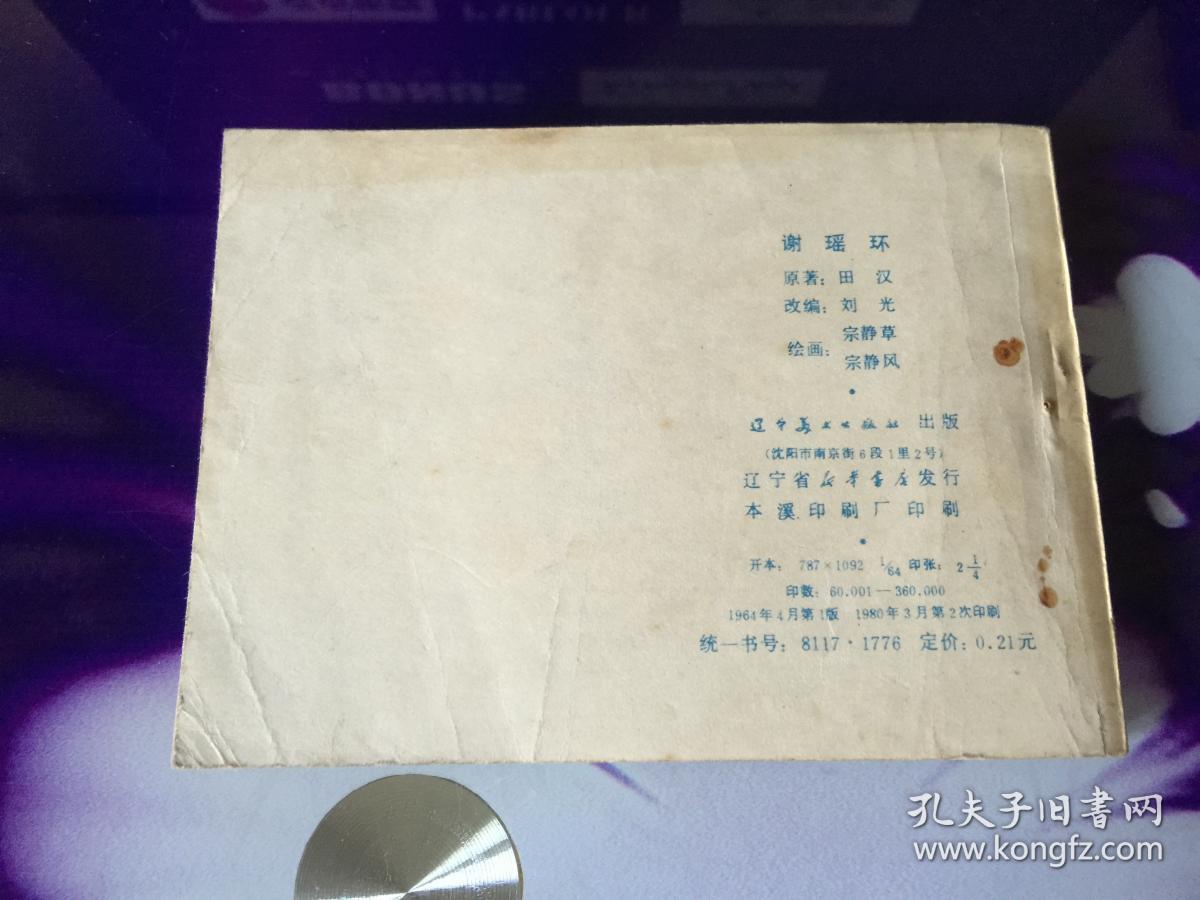 谢瑶环
原著：田汉
改编：刘光
绘画：宗静草
宗静风
辽宁美术出版社 出版
（沈阳市南京街6段1里2号）
辽宁省新华书店发行
本溪印刷厂印刷
开本：787×1092 1/64 印张：2 1/4
印数：60,001—360,000
1964年4月第1版 1980年3月第2次印刷
统一书号：8117·1776 定价：0.21元
孔夫子旧书网
www.kongfz.com